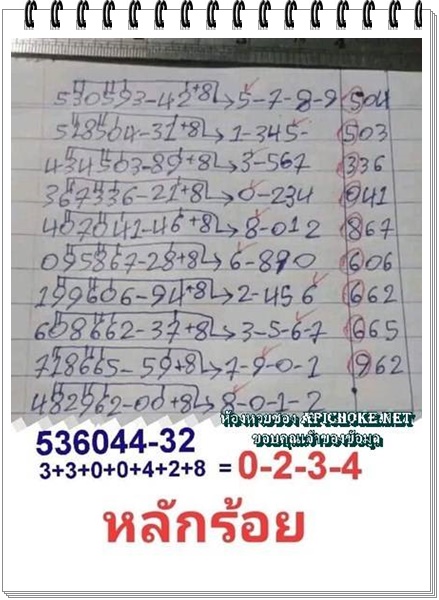 530593-42+8→5-7-8-9 504
528504-31+8→1-345- 503
434503-89+8→3-567 336
367336-21+8→0-234 041
407041-46+8→8-012 867
095867-28+8→6-890 606
199606-94+8→2-456 662
608662-37+8→3-5-6-7 665
728665-59+8→7-9-0-1 962
482962-00+8→8-0-1-2
ห้องหวยซอง APICHOKE.NET
ขอบคุณเจ้าของข้อมูล
536044-32
3+3+0+0+4+2+8 = 0-2-3-4
หลักร้อย